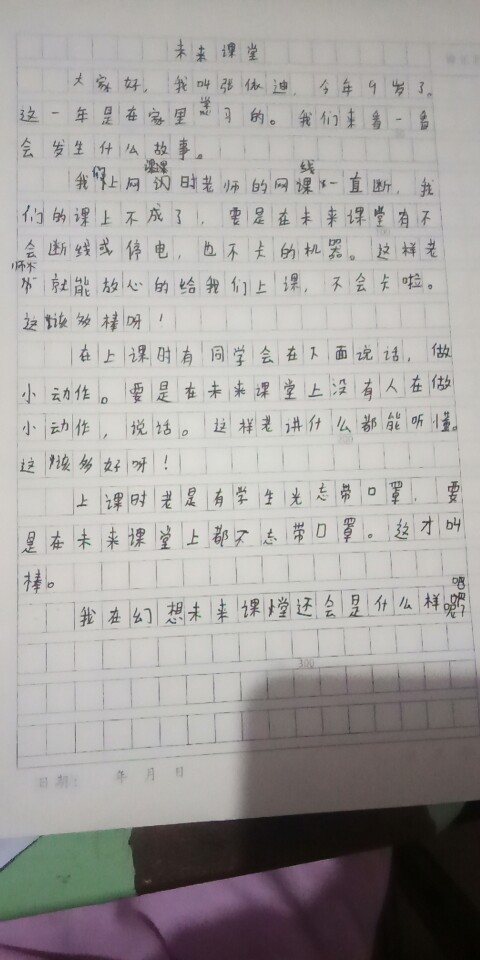 未来课堂
大家好，我叫张依迪，今年9岁了。
这一年是在家里学习的。我们来看一看
会发生什么故事。
我们上网课时老师的网线一直断，我
们的课上不成了，要是在未来课堂有不
会断线或停电，也不卡的机器。这样老
师就能放心的给我们上课，不会卡啦。
这该多棒呀！
在上课时有同学会在下面说话，做
小动作。要是在未来课堂上没有人在做
小动作，说话。这样老讲什么都能听懂。
这该多好呀！
上课时老是有学生忘带口罩，要
是在未来课堂上都不忘带口罩。这才叫
棒。
我在幻想未来课堂还会是什么样呢？
300
日期： 年 月 日